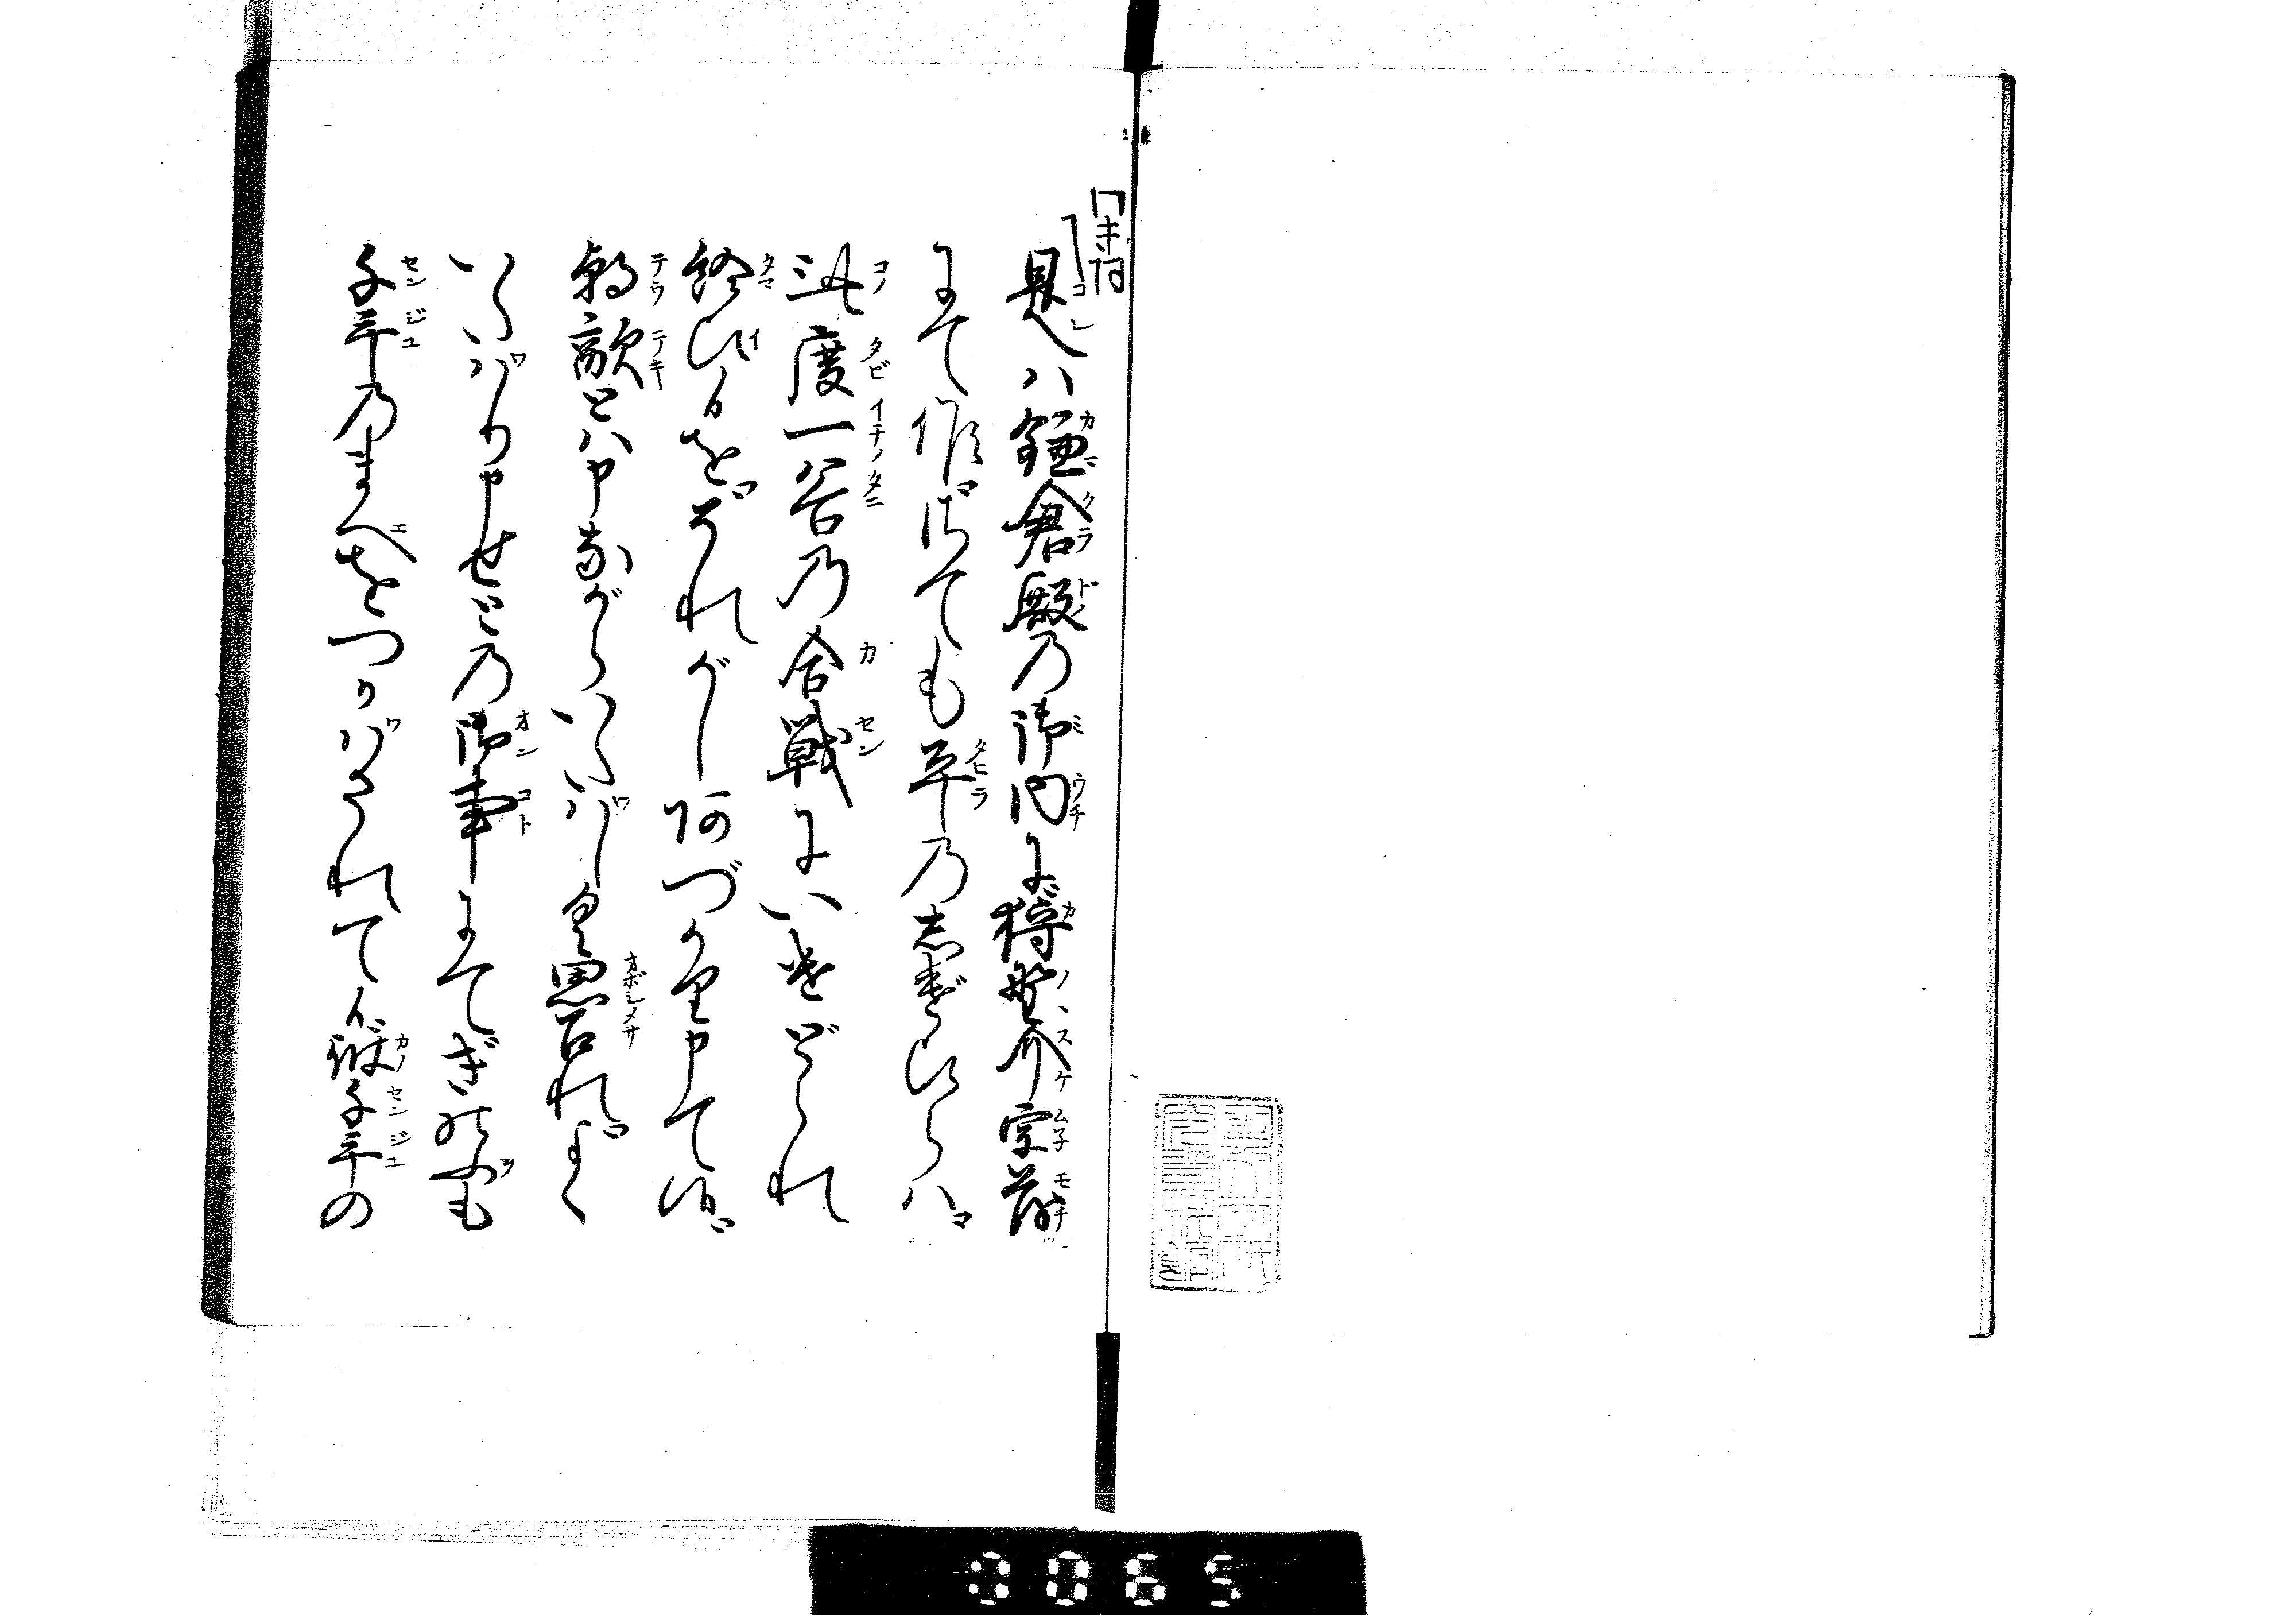 ワキ詞
是ハ鎌倉殿乃御内に狩野介宗茂
にて候さても平乃志げひらハ
此度一谷乃合戦にいけどられ
給ひ候をそれがしあづかり申て候
朝敵とハ申ながらいたハしく思召れよく
いたハり申せと乃御事にてきのふも
千手乃まへをつかハされて候彼千手の
0065